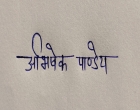 अभिषेक पाण्डेय